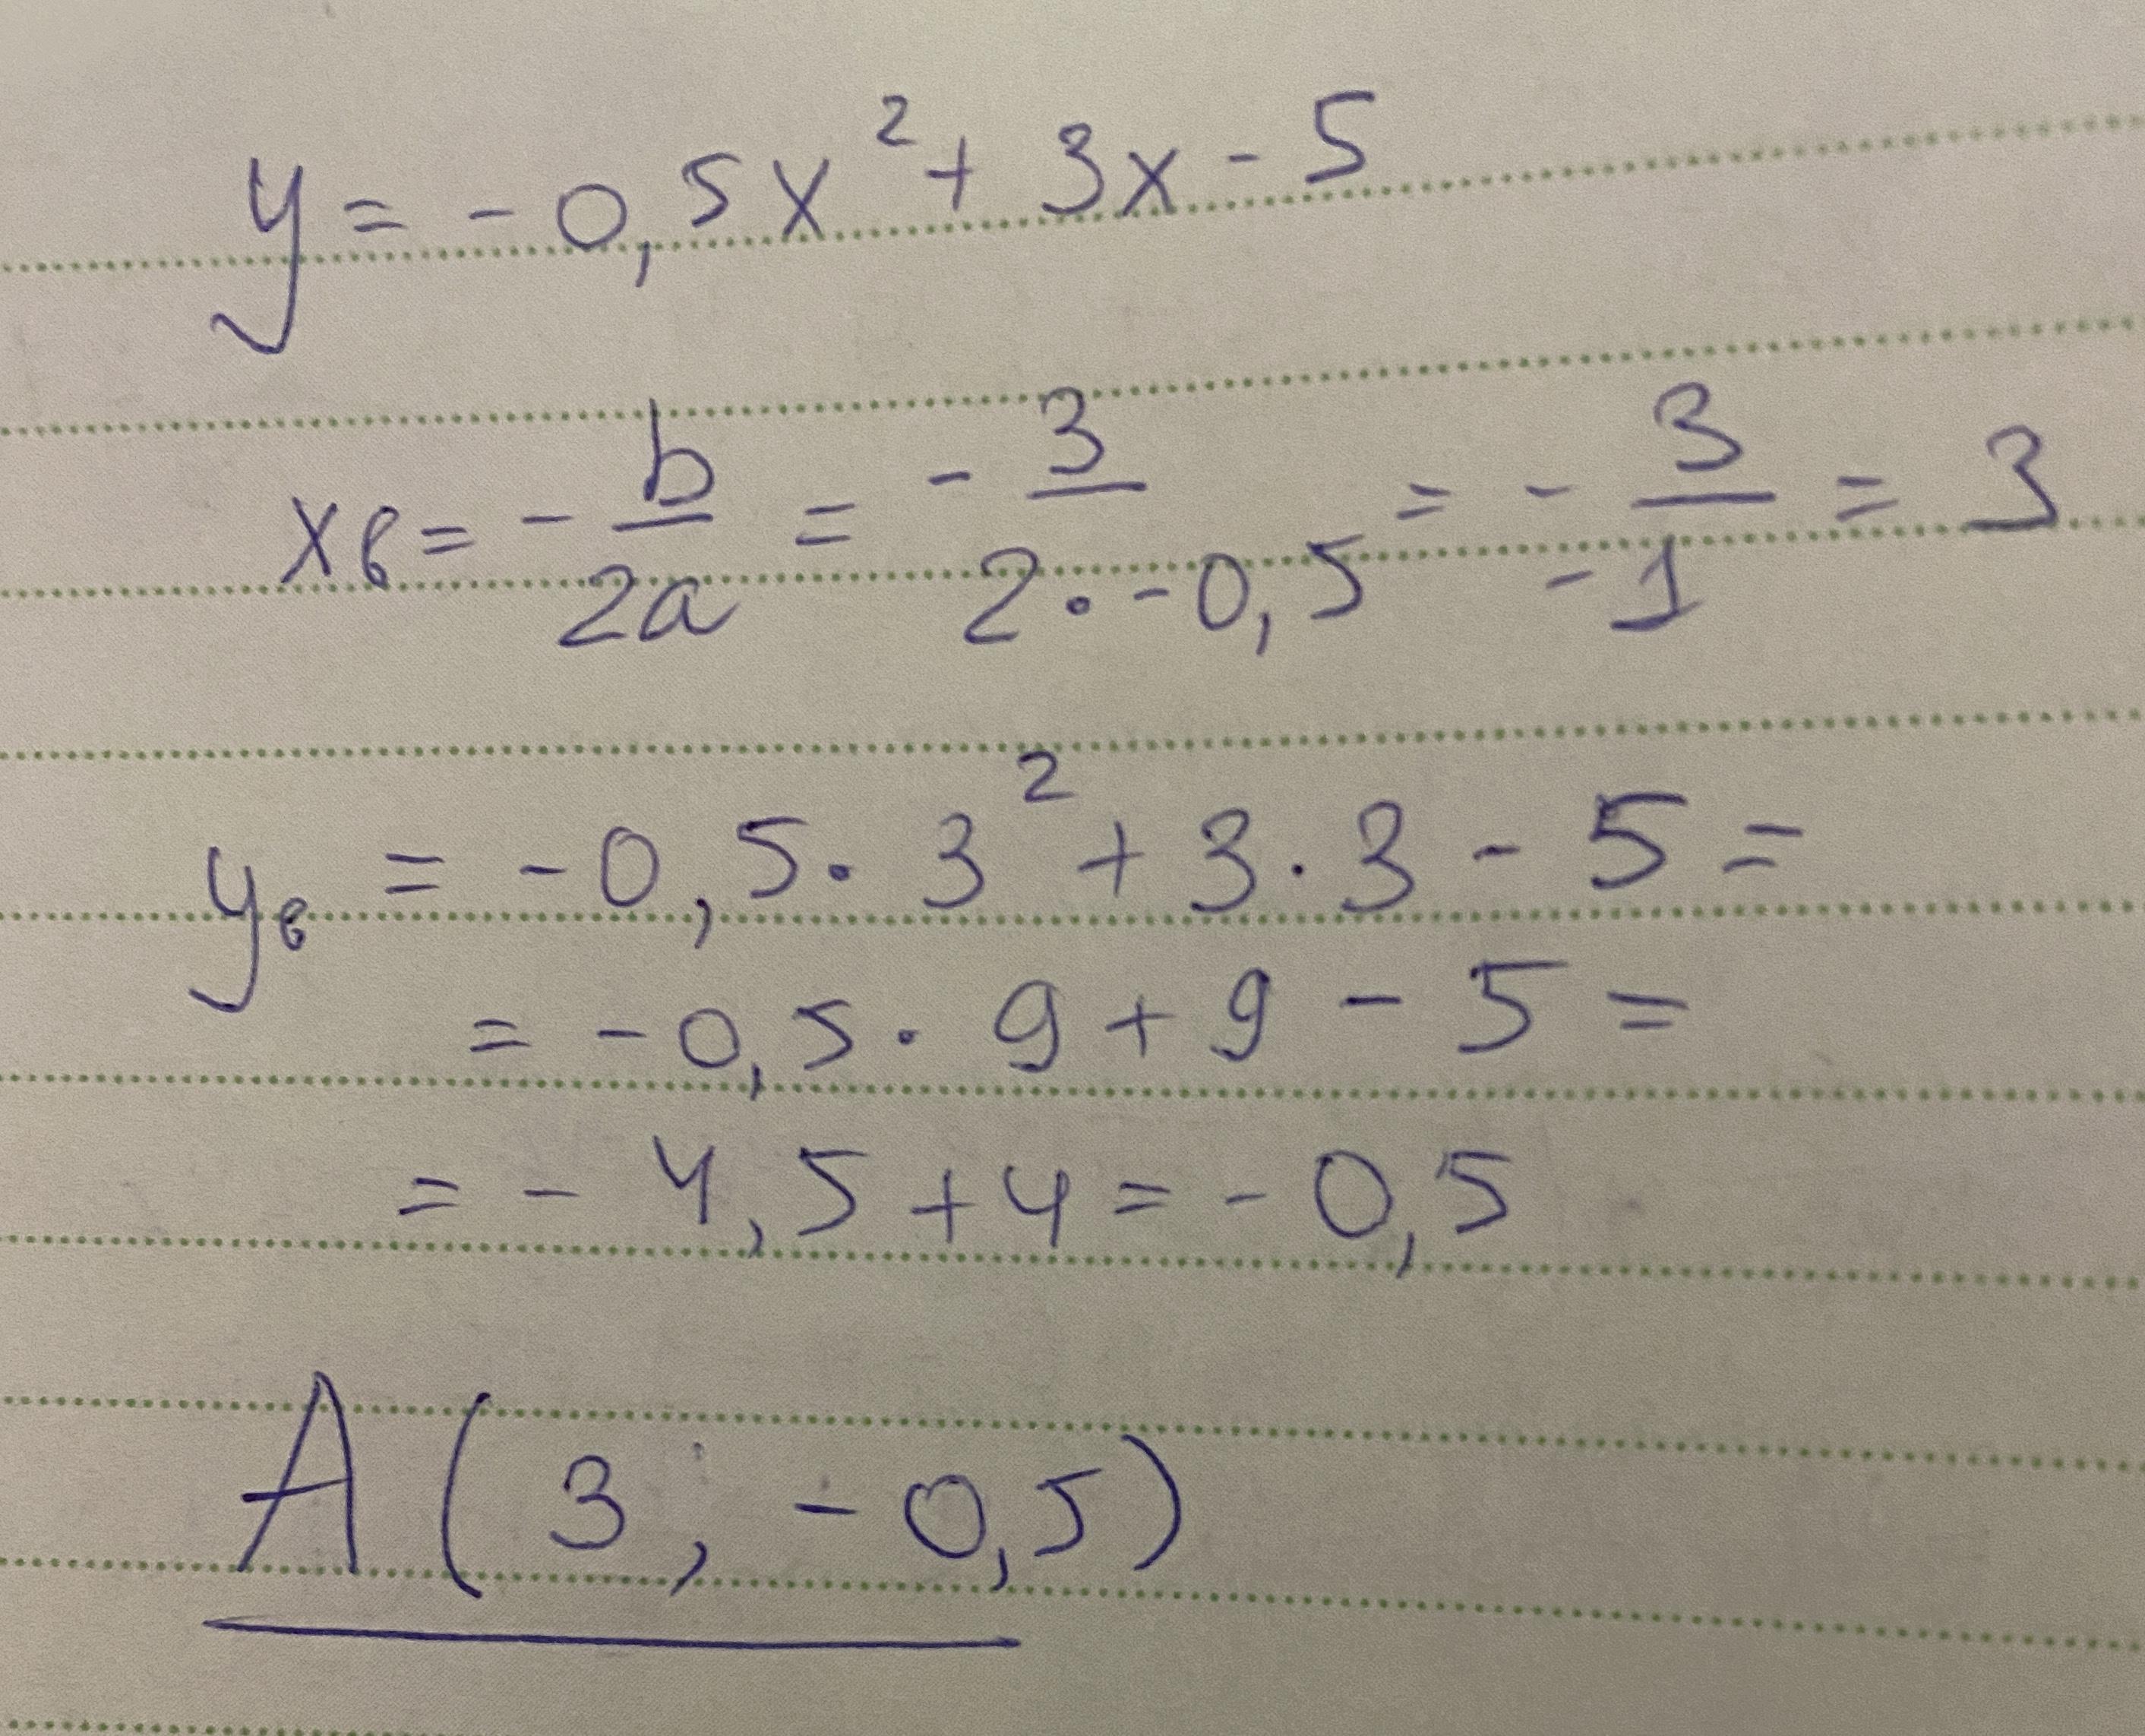 y = -0,5x² + 3x - 5
xв = - b/2a = - 3/(2 · -0,5) = - 3/-1 = 3
yв = -0,5 · 3² + 3 · 3 - 5 =
= -0,5 · 9 + 9 - 5 =
= - 4,5 + 4 = - 0,5
A (3; -0,5)